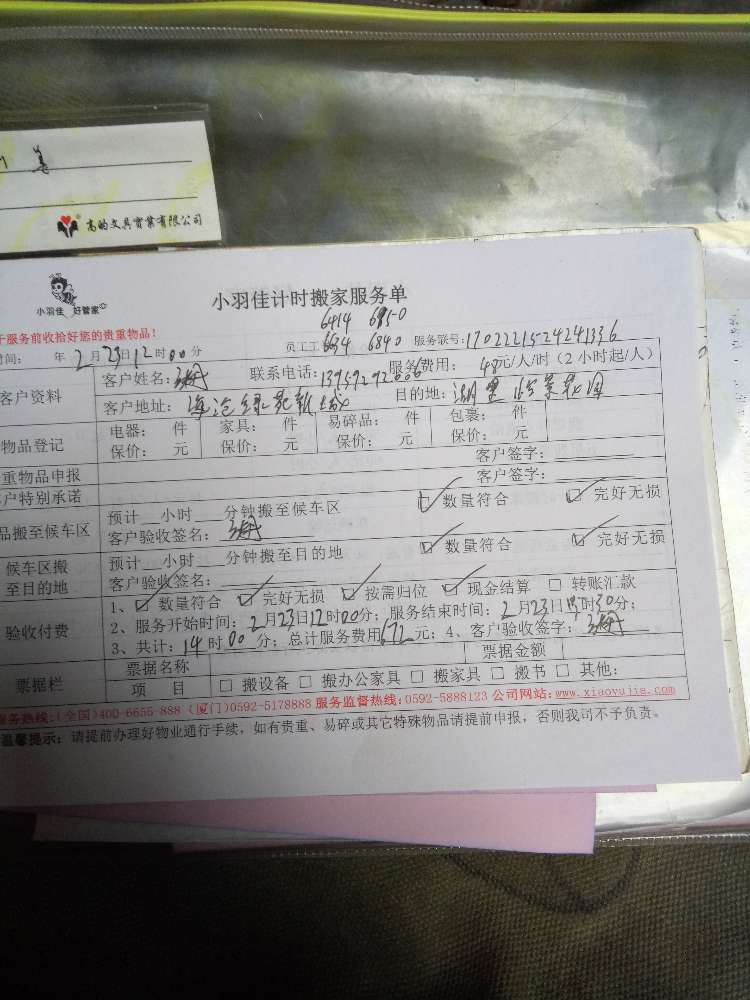 善
高的文具實業有限公司
小羽佳 好管家
小羽佳计时搬家服务单
于服务前收拾好您的贵重物品!
6414 6850
时间: 年2月23日12时00分 员工工 6634 6840 服务联号:1702221524241336
客户资料 客户姓名: 联系电话:13959292006 服务费用: 48元/人/时(2小时起/人)
客户地址:海沧绿苑新城 目的地:湖里
物品登记 电器: 件 家具: 件 易碎品: 件 包裹: 件
保价: 元 保价: 元 保价: 元 保价: 元
重物品申报 客户签字:
户特别承诺 客户签字:
品搬至候车区 预计 小时 分钟搬至候车区 ☑ 数量符合 ☑ 完好无损
客户验收签名:
候车区搬至目的地 预计 小时 分钟搬至目的地 ☑ 数量符合 ☑ 完好无损
客户验收签名:
验收付费 1、☑ 数量符合 ☑ 完好无损 ☑ 按需归位 ☑ 现金结算 □ 转账汇款
2、服务开始时间:2月23日12时00分;服务结束时间:2月23日15时30分;
3、共计:14时00分;总计服务费用672元;4、客户验收签字:
票据栏 票据名称 票据金额
项 目 □ 搬设备 □ 搬办公家具 □ 搬家具 □ 搬书 □ 其他:
服务热线:(全国)400-6655-888 (厦门)0592-5178888 服务监督热线:0592-5888123 公司网站:www.xiaoyujia.com
温馨提示:请提前办理好物业通行手续,如有贵重、易碎或其它特殊物品请提前申报,否则我司不予负责。